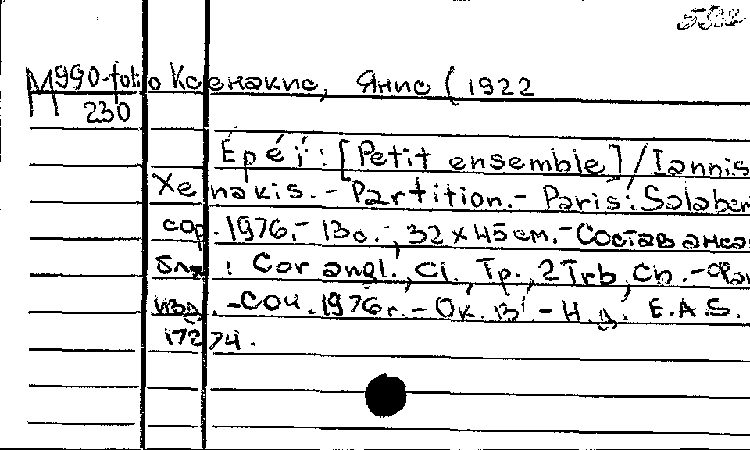 М990-folio Ксенакис, Янис (1922
230
Épéi : [Petit ensemble] / Iannis
Xenakis. - Partition. - Paris: Salaber
cop. 1976. - 13 с.; 32 x 45 см. - Состав анса
бля : Cor angl., Cl., Tp., 2Trb, Cb. -
изд. - Соч. 1976г. - Ок. 13' - Н.д. E.A.S.
17274.